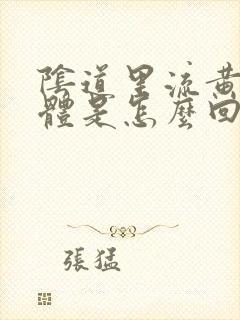 陰道里流黃
體是怎麼回
張猛